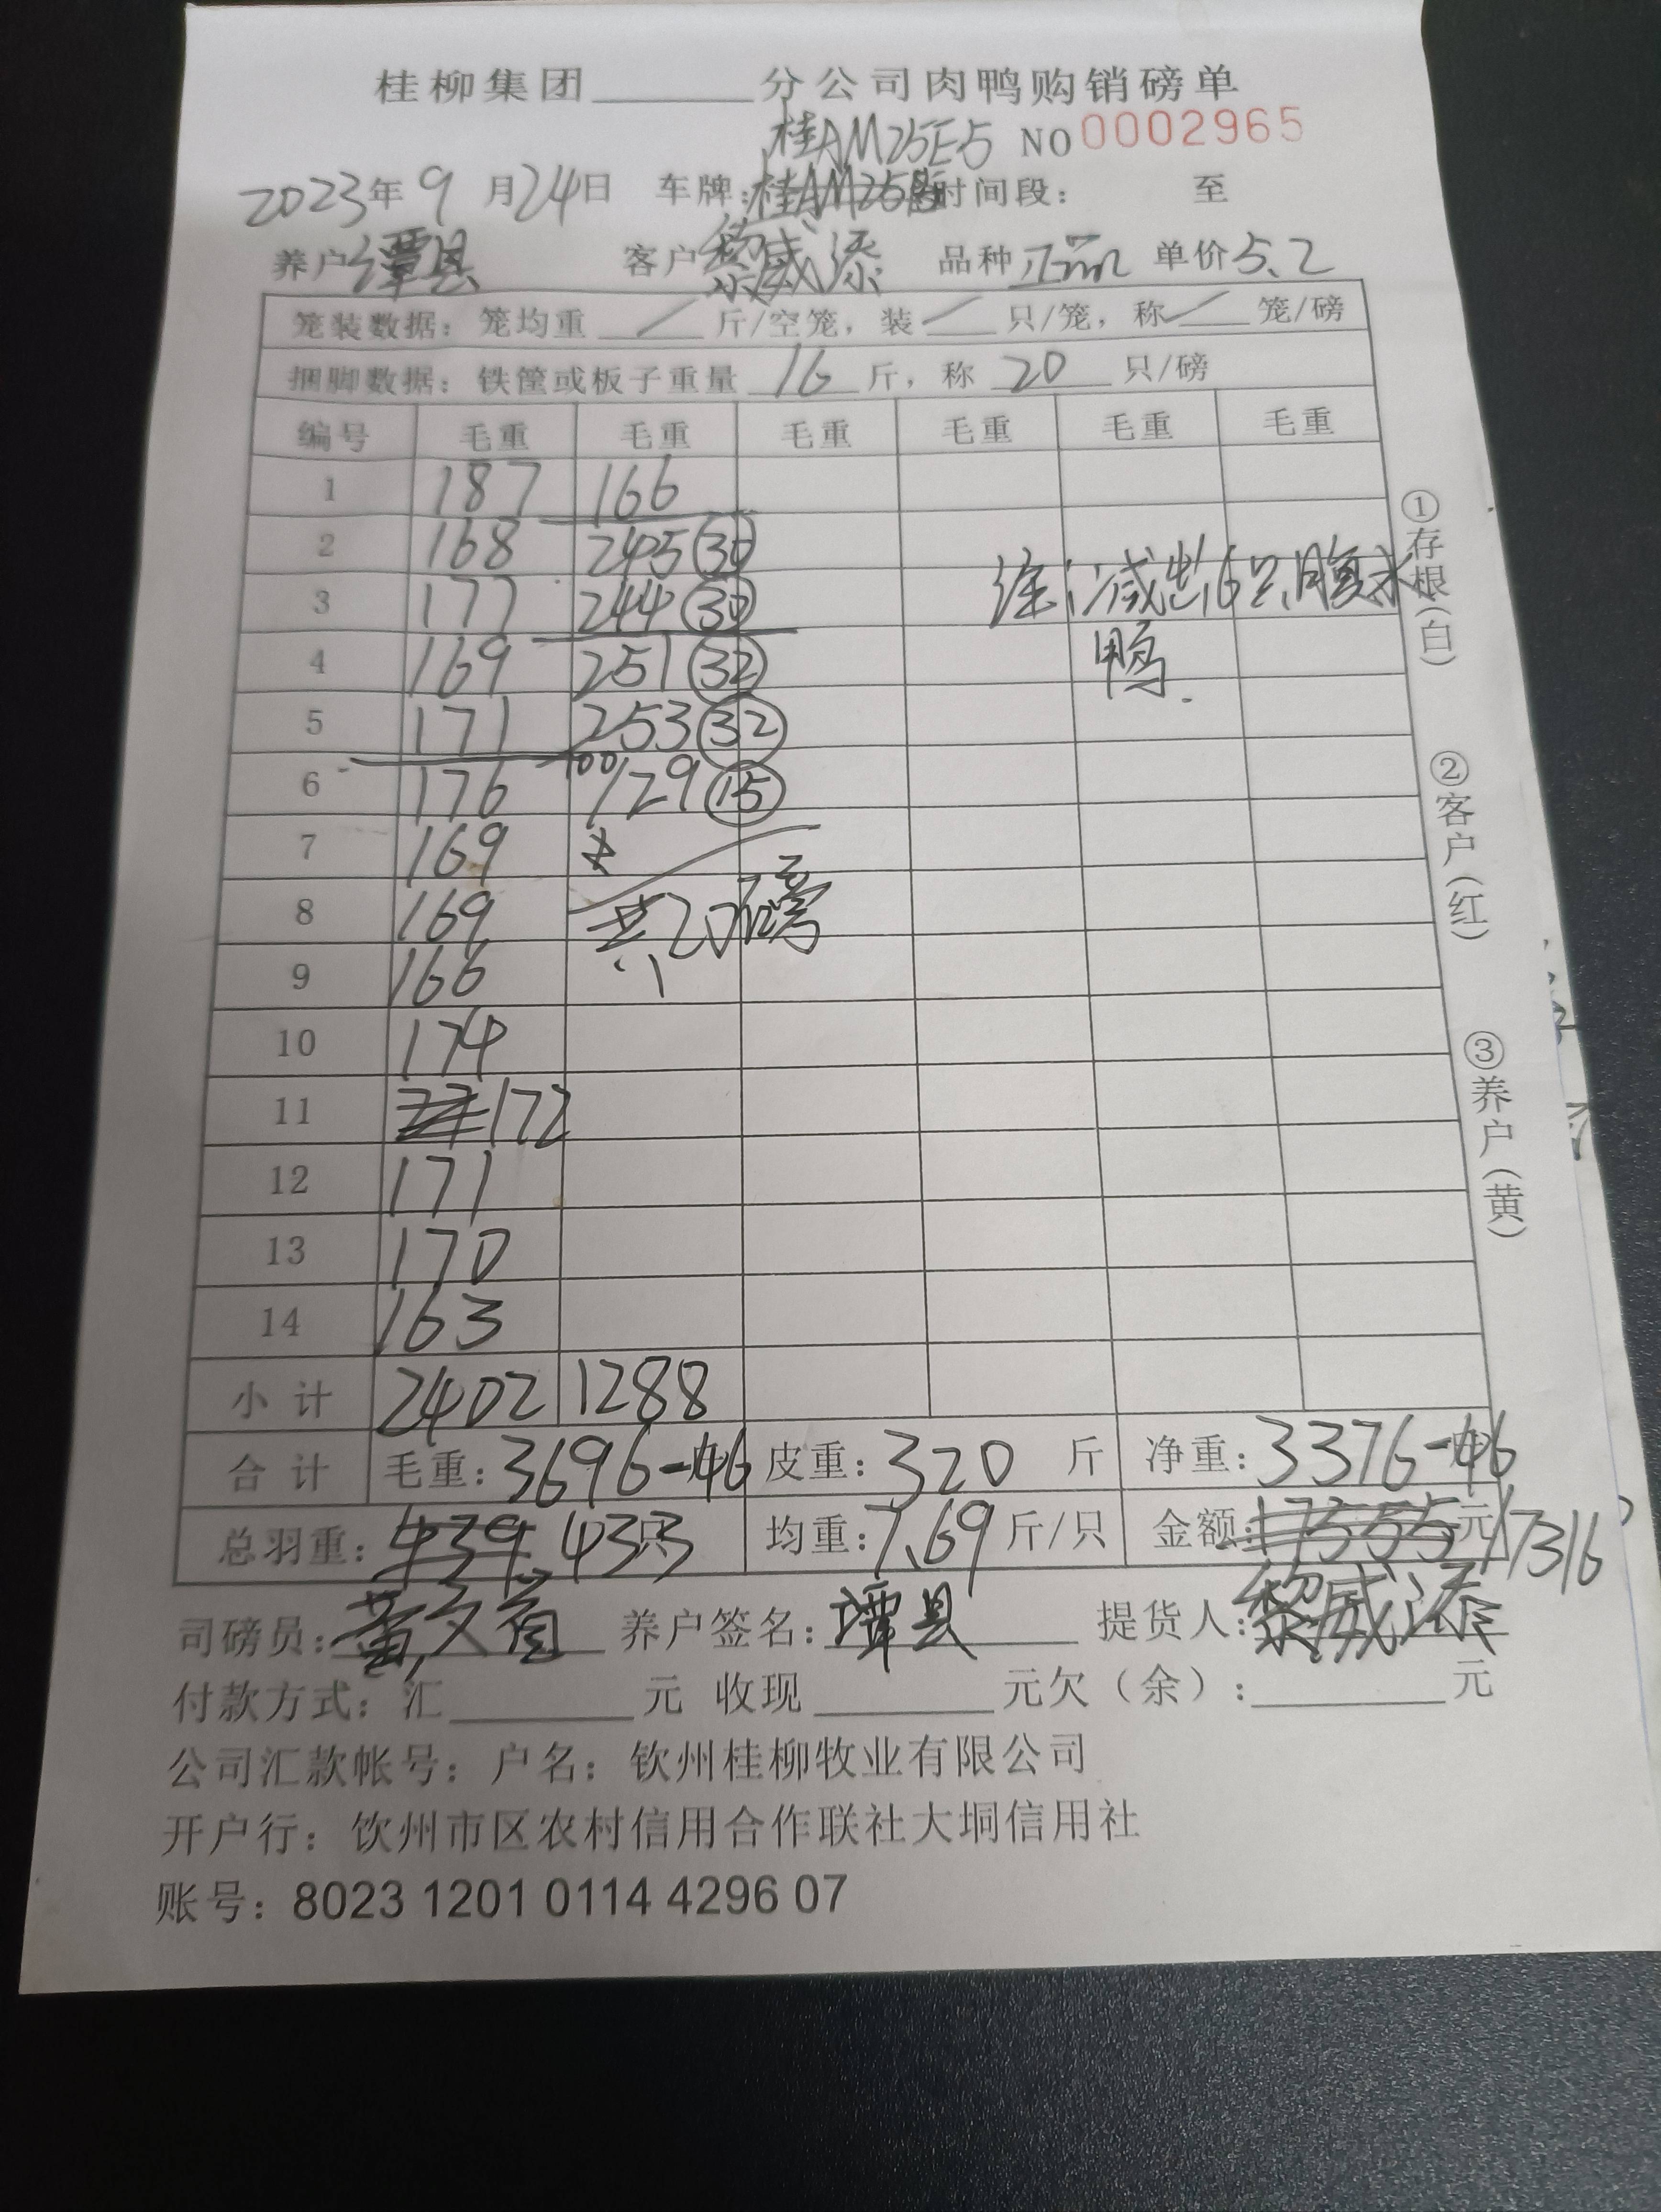 桂柳集团______分公司肉鸭购销磅单
桂AM25E5 NO 0002965
2023年9月24日 车牌:桂AM25 时间段: 至
养户谭县 客户黎威添 品种正品 单价5.2
笼装数据: 笼均重 / 斤/空笼, 装 / 只/笼, 称 / 笼/磅
捆脚数据: 铁筐或板子重量 16 斤, 称 20 只/磅
编号 毛重 毛重 毛重 毛重 毛重 毛重
1 187 166
2 168 245 (30)
3 177 244 (30)
4 169 251 (32)
5 171 253 (32)
6 176 129 (15)
7 169
8 169 共20磅
9 166
10 174
11 172
12 171
13 170
14 163
小计 2402 1288
合计 毛重: 3696-46 皮重: 320 斤 净重: 3376-46
总羽重: 439 433只 均重: 7.69 斤/只 金额: 17555元 17316
减出6只腹水
鸭.
①存根(白)
②客户(红)
③养户(黄)
司磅员: 黄 养户签名: 谭县 提货人: 黎威添
付款方式: 汇______元 收现______元欠(余):______元
公司汇款帐号: 户名: 钦州桂柳牧业有限公司
开户行: 饮州市区农村信用合作联社大垌信用社
账号: 8023 1201 0114 4296 07